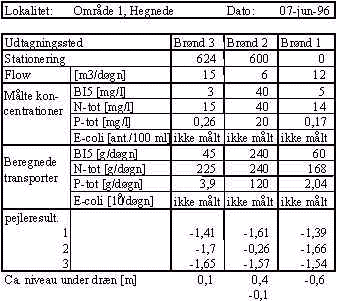 Lokalitet: Område 1, Hegnede Dato: 07-jun-96
Udtagningssted Brønd 3 Brønd 2 Brønd 1
Stationering 624 600 0
Flow [m3/døgn] 15 6 12
Målte kon- BI5 [mg/l] 3 40 5
centrationer N-tot [mg/l] 15 40 14
P-tot [mg/l] 0,26 20 0,17
E-coli [ant./100 ml] ikke målt ikke målt ikke målt
Beregnede BI5 [g/døgn] 45 240 60
transporter N-tot [g/døgn] 225 240 168
P-tot [g/døgn] 3,9 120 2,04
E-coli [10⁹/døgn] ikke målt ikke målt ikke målt
pejleresult.
1 -1,41 -1,61 -1,39
2 -1,7 -0,26 -1,66
3 -1,65 -1,57 -1,54
Ca. niveau under dræn [m] 0,1 0,4 -0,6
-0,1